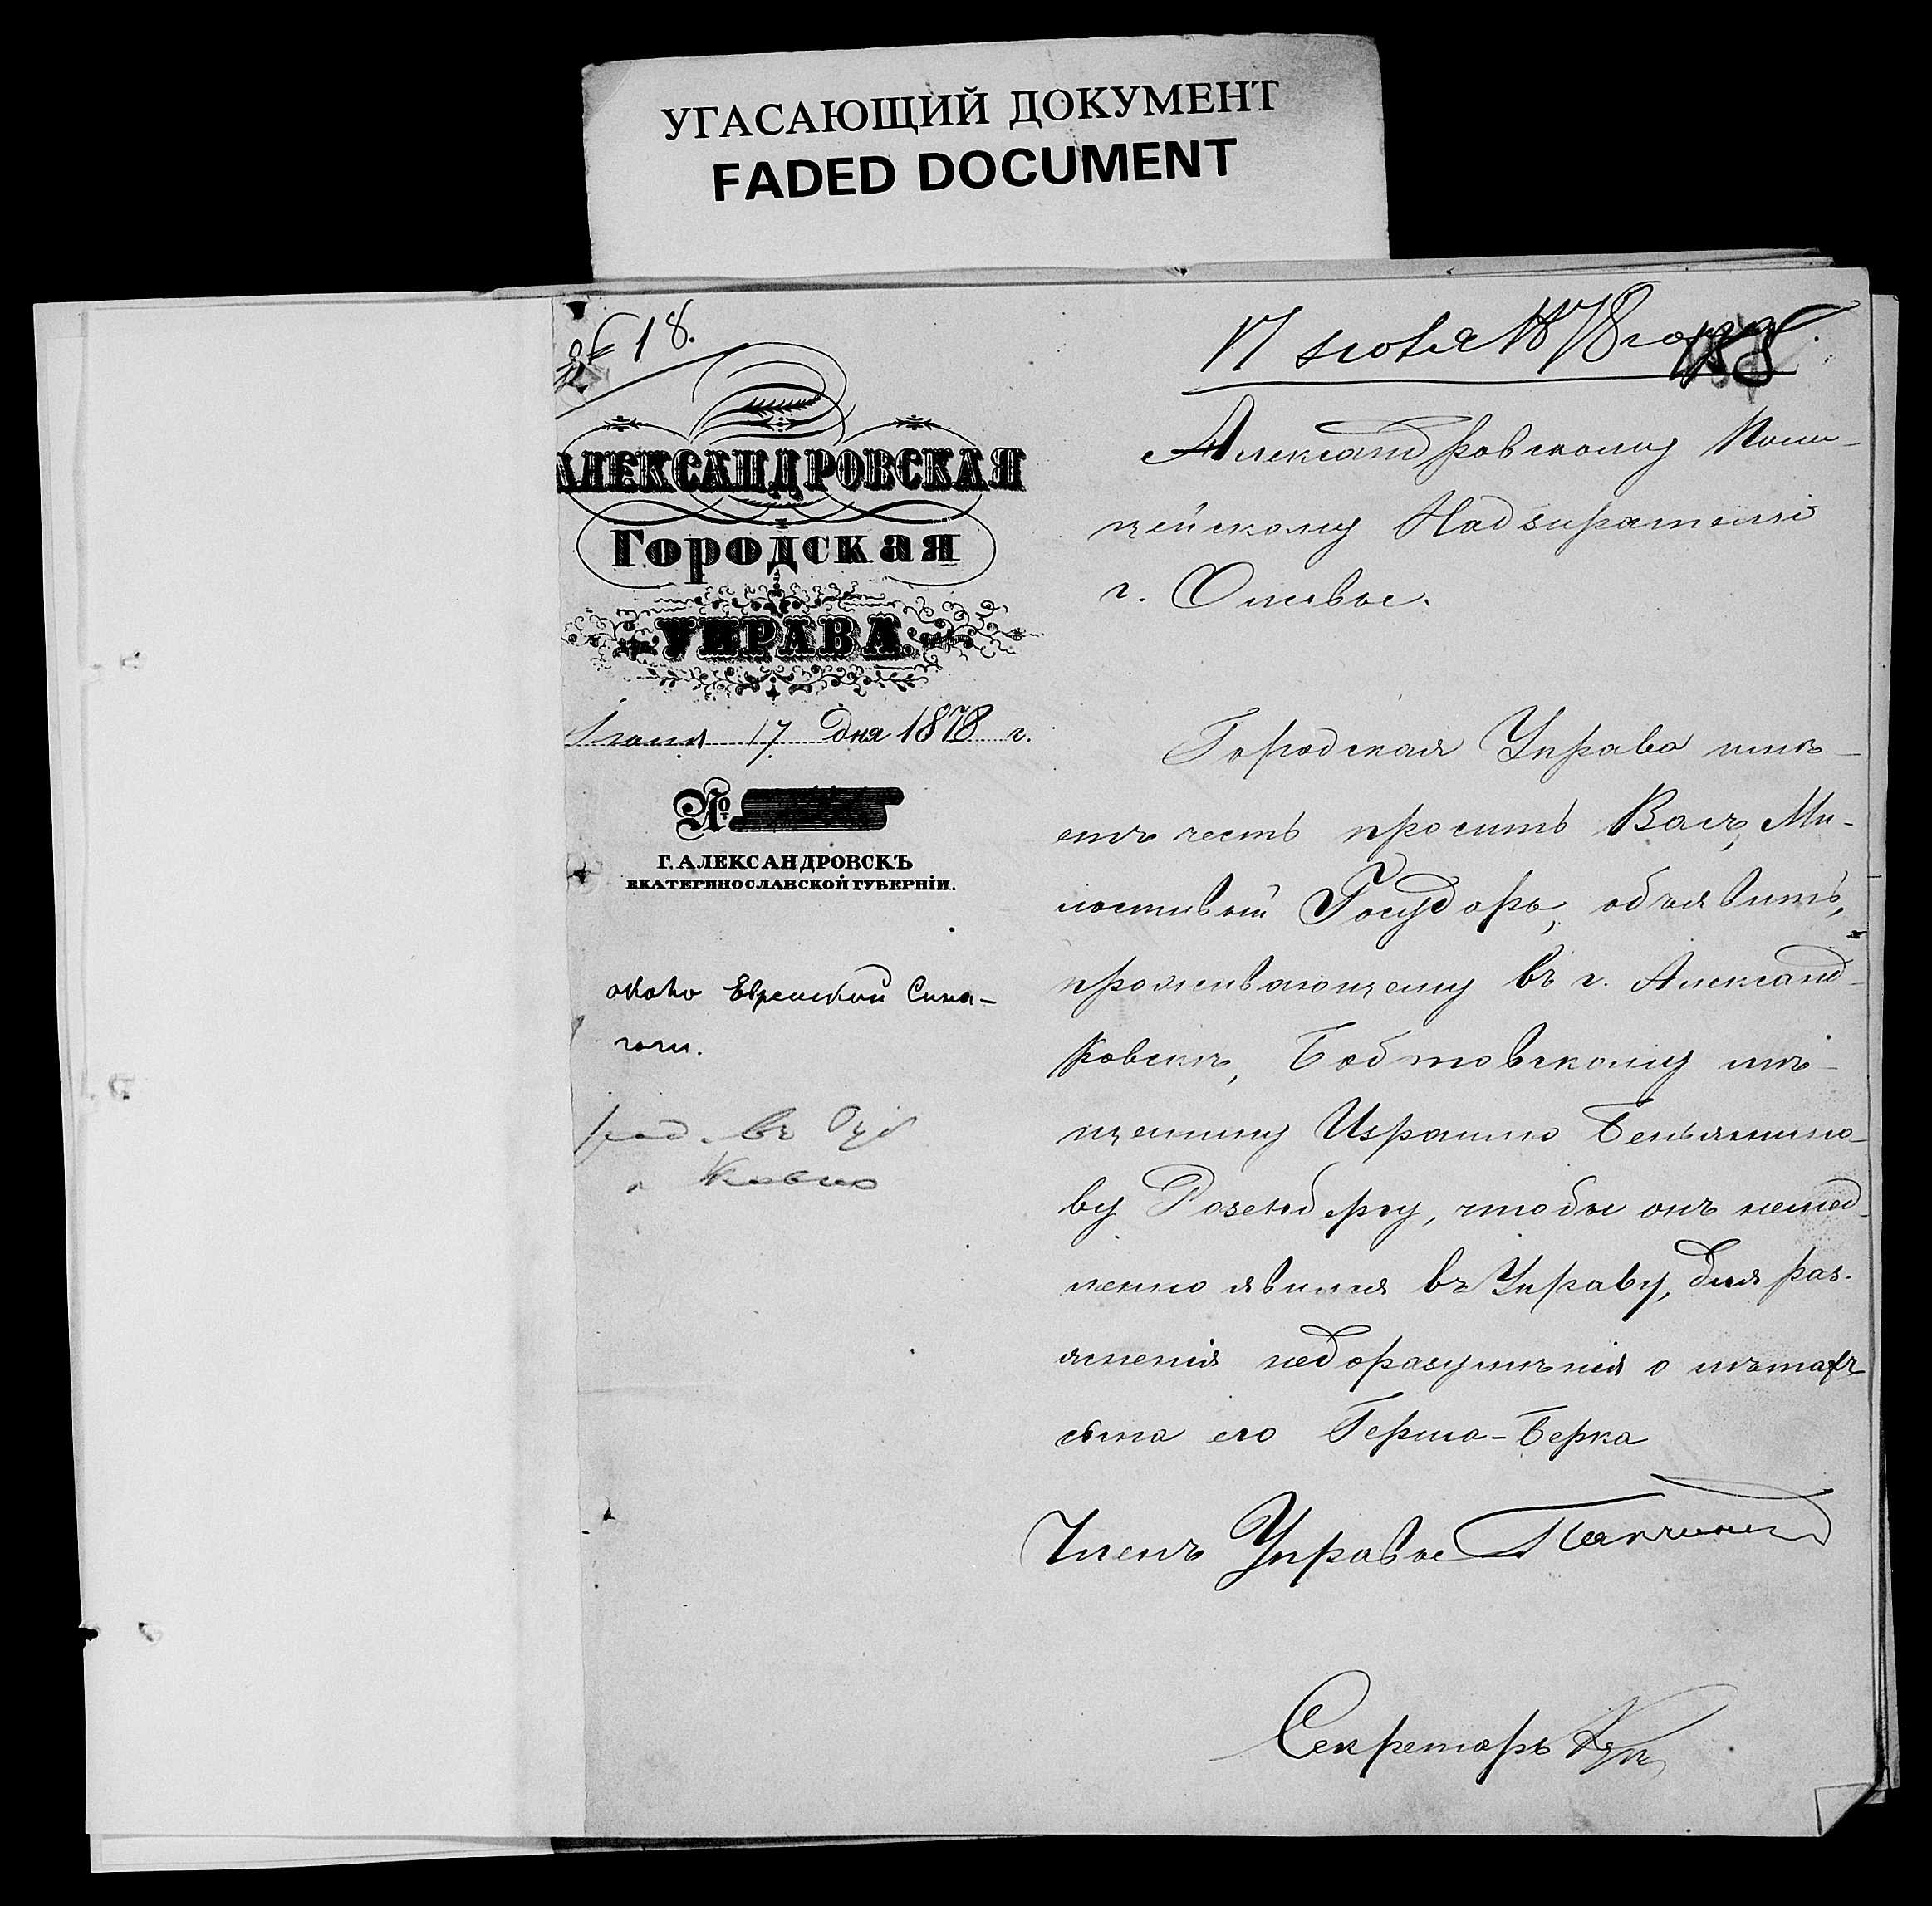 УГАСАЮЩИЙ ДОКУМЕНТ
FADED DOCUMENT
№ 18.
АЛЕКСАНДРОВСКАЯ
Городская
УПРАВА.
17 дня 1878 г.
№
Г. АЛЕКСАНДРОВСКЪ
ЕКАТЕРИНОСЛАВСКОЙ ГУБЕРНІИ.
около Еврейской Сина-
гоги.
въ
Ковно
17 1878 года
Александровскому Поли-
цейскому Надзирателю
г. Оливье.
Городская Управа имѣ-
етъ честь просить Васъ, Ми-
лостивый Государь, объявить,
проживающему въ г. Александ-
ровскѣ, мѣ-
щанину Израилю Беньямино-
ву Розенбергу, чтобы онъ немед-
ленно явился въ Управу, для раз-
ясненія недоразумѣнія о лѣтахъ
сына его Герша-Берка
Членъ Управы
Секретарь